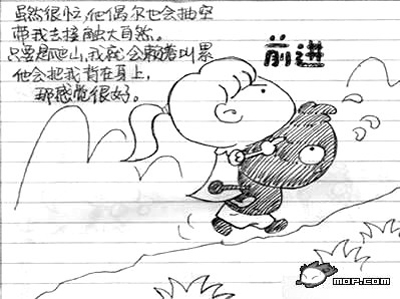 虽然很忙,他偶尔也会抽空
带我去接触大自然。
只要是爬山,我就会赖着叫累
他会把我背在身上,
那感觉很好。
前进
MOP.COM